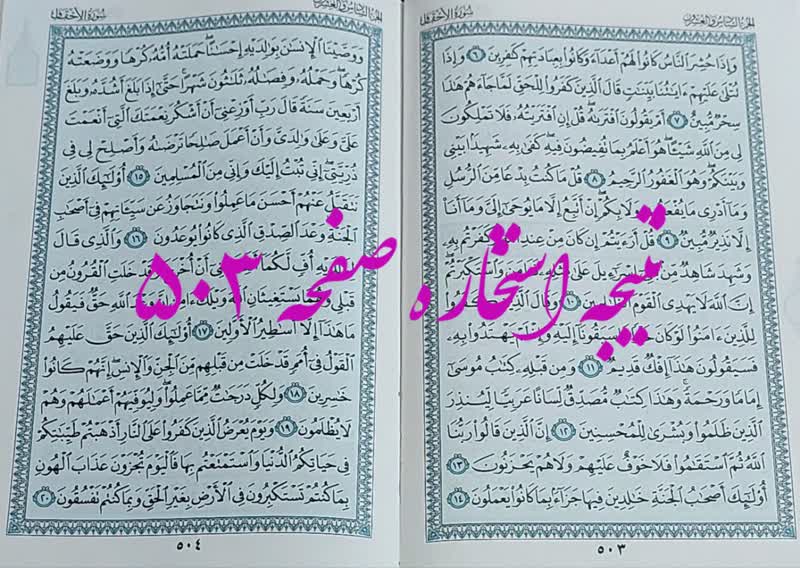 الجزء السادس والعشرون سورة الأحقاف
وَإِذَا حُشِرَ ٱلنَّاسُ كَانُوا۟ لَهُمْ أَعْدَآءً وَكَانُوا۟ بِعِبَادَتِهِمْ كَٰفِرِينَ ٦ وَإِذَا
تُتْلَىٰ عَلَيْهِمْ ءَايَٰتُنَا بَيِّنَٰتٍ قَالَ ٱلَّذِينَ كَفَرُوا۟ لِلْحَقِّ لَمَّا جَآءَهُمْ هَٰذَا
سِحْرٌ مُّبِينٌ ٧ أَمْ يَقُولُونَ ٱفْتَرَىٰهُ قُلْ إِنِ ٱفْتَرَيْتُهُۥ فَلَا تَمْلِكُونَ
لِى مِنَ ٱللَّهِ شَيْـًٔا هُوَ أَعْلَمُ بِمَا تُفِيضُونَ فِيهِ كَفَىٰ بِهِۦ شَهِيدًۢا بَيْنِى
وَبَيْنَكُمْ وَهُوَ ٱلْغَفُورُ ٱلرَّحِيمُ ٨ قُلْ مَا كُنتُ بِدْعًا مِّنَ ٱلرُّسُلِ
وَمَآ أَدْرِى مَا يُفْعَلُ وَلَا بِكُمْ إِنْ أَتَّبِعُ إِلَّا مَا يُوحَىٰٓ إِلَىَّ وَمَآ أَنَا۠
إِلَّا نَذِيرٌ مُّبِينٌ ٩ قُلْ أَرَءَيْتُمْ إِن كَانَ مِنْ عِندِ وَكَفَرْتُم بِهِۦ
وَشَهِدَ شَاهِدٌ مِّنۢ بَنِىٓ إِسْرَٰٓءِيلَ عَلَىٰ مِثْلِهِۦ وَٱسْتَكْبَرْتُمْ
إِنَّ ٱللَّهَ لَا يَهْدِى ٱلْقَوْمَ ٱلظَّٰلِمِينَ ١٠ وَقَالَ ٱلَّذِينَ كَفَرُوا۟
لِلَّذِينَ ءَامَنُوا۟ لَوْ كَانَ خَيْرًا مَّا سَبَقُونَآ إِلَيْهِ وَإِذْ لَمْ يَهْتَدُوا۟ بِهِۦ
فَسَيَقُولُونَ هَٰذَآ إِفْكٌ قَدِيمٌ ١١ وَمِن قَبْلِهِۦ كِتَٰبُ مُوسَىٰٓ
إِمَامًا وَرَحْمَةً وَهَٰذَا كِتَٰبٌ مُّصَدِّقٌ لِّسَانًا عَرَبِيًّا لِّيُنذِرَ
ٱلَّذِينَ ظَلَمُوا۟ وَبُشْرَىٰ لِلْمُحْسِنِينَ ١٢ إِنَّ ٱلَّذِينَ قَالُوا۟ رَبُّنَا
ٱللَّهُ ثُمَّ ٱسْتَقَٰمُوا۟ فَلَا خَوْفٌ عَلَيْهِمْ وَلَا هُمْ يَحْزَنُونَ ١٣
أُو۟لَٰٓئِكَ أَصْحَٰبُ ٱلْجَنَّةِ خَٰلِدِينَ فِيهَا جَزَآءًۢ بِمَا كَانُوا۟ يَعْمَلُونَ ١٤
٥٠٣
الجزء السادس والعشرون سورة الأحقاف
وَوَصَّيْنَا ٱلْإِنسَٰنَ بِوَٰلِدَيْهِ إِحْسَٰنًا حَمَلَتْهُ أُمُّهُۥ كُرْهًا وَوَضَعَتْهُ
كُرْهًا وَحَمْلُهُۥ وَفِصَٰلُهُۥ ثَلَٰثُونَ شَهْرًا حَتَّىٰٓ إِذَا بَلَغَ أَشُدَّهُۥ وَبَلَغَ
أَرْبَعِينَ سَنَةً قَالَ رَبِّ أَوْزِعْنِىٓ أَنْ أَشْكُرَ نِعْمَتَكَ ٱلَّتِىٓ أَنْعَمْتَ
عَلَىَّ وَعَلَىٰ وَٰلِدَىَّ وَأَنْ أَعْمَلَ صَٰلِحًا تَرْضَىٰهُ وَأَصْلِحْ لِى فِى
ذُرِّيَّتِىٓ إِنِّى تُبْتُ إِلَيْكَ وَإِنِّى مِنَ ٱلْمُسْلِمِينَ ١٥ أُو۟لَٰٓئِكَ ٱلَّذِينَ
نَتَقَبَّلُ عَنْهُمْ أَحْسَنَ مَا عَمِلُوا۟ وَنَتَجَاوَزُ عَن سَيِّـَٔاتِهِمْ فِىٓ أَصْحَٰبِ
ٱلْجَنَّةِ وَعْدَ ٱلصِّدْقِ ٱلَّذِى كَانُوا۟ يُوعَدُونَ ١٦ وَٱلَّذِى قَالَ
لِوَٰلِدَيْهِ أُفٍّ لَّكُمَآ أَنْ أُخْرَجَ وَقَدْ خَلَتِ ٱلْقُرُونُ مِن
قَبْلِى وَهُمَا يَسْتَغِيثَانِ ٱللَّهَ وَيْلَكَ ءَامِنْ إِنَّ وَعْدَ ٱللَّهِ حَقٌّ فَيَقُولُ
مَا هَٰذَآ إِلَّآ أَسَٰطِيرُ ٱلْأَوَّلِينَ ١٧ أُو۟لَٰٓئِكَ ٱلَّذِينَ حَقَّ عَلَيْهِمُ
ٱلْقَوْلُ فِىٓ أُمَمٍ قَدْ خَلَتْ مِن قَبْلِهِم مِّنَ ٱلْجِنِّ وَٱلْإِنسِ إِنَّهُمْ كَانُوا۟
خَٰسِرِينَ ١٨ وَلِكُلٍّ دَرَجَٰتٌ مِّمَّا عَمِلُوا۟ وَلِيُوَفِّيَهُمْ أَعْمَٰلَهُمْ وَهُمْ
لَا يُظْلَمُونَ ١٩ وَيَوْمَ يُعْرَضُ ٱلَّذِينَ كَفَرُوا۟ عَلَى ٱلنَّارِ أَذْهَبْتُمْ طَيِّبَٰتِكُمْ
فِى حَيَاتِكُمُ ٱلدُّنْيَا وَٱسْتَمْتَعْتُم بِهَا فَٱلْيَوْمَ تُجْزَوْنَ عَذَابَ ٱلْهُونِ
بِمَا كُنتُمْ تَسْتَكْبِرُونَ فِى ٱلْأَرْضِ بِغَيْرِ ٱلْحَقِّ وَبِمَا كُنتُمْ تَفْسُقُونَ ٢٠
٥٠٤
نتیجه استخاره صفحه ۵۰۳